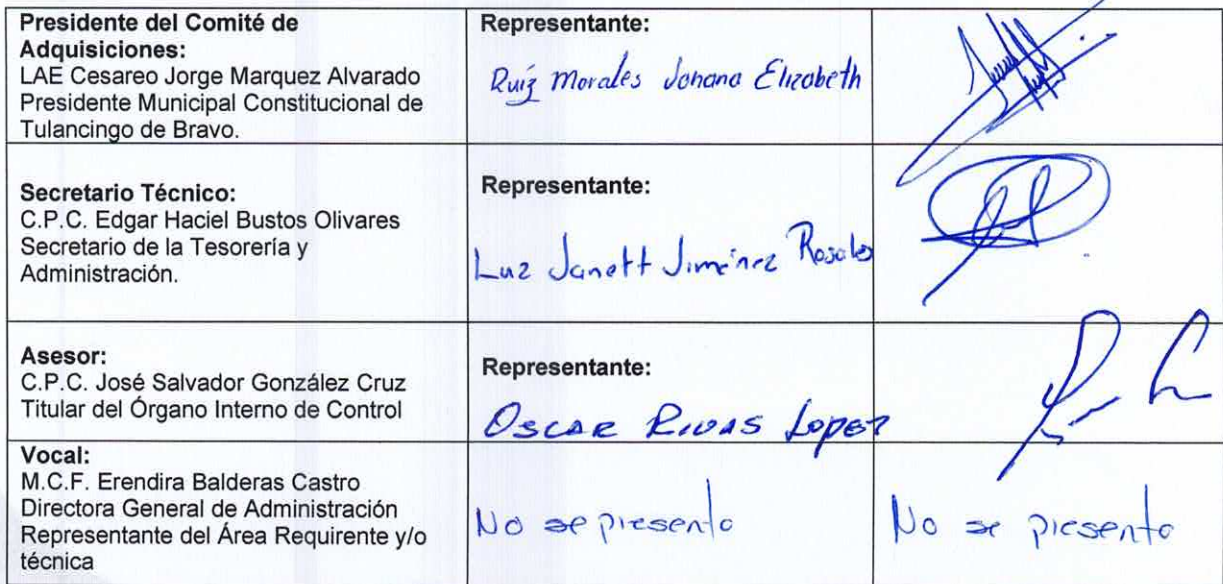 Presidente del Comité de
Adquisiciones:
LAE Cesareo Jorge Marquez Alvarado
Presidente Municipal Constitucional de
Tulancingo de Bravo.
Representante:
Ruiz Morales Johana Elizabeth
Secretario Técnico:
C.P.C. Edgar Haciel Bustos Olivares
Secretario de la Tesorería y
Administración.
Representante:
Luz Janett Jiménez Rosales
Asesor:
C.P.C. José Salvador González Cruz
Titular del Órgano Interno de Control
Representante:
OSCAR RIVAS LOPEZ
Vocal:
M.C.F. Erendira Balderas Castro
Directora General de Administración
Representante del Área Requirente y/o
técnica
No se presento
No se presento